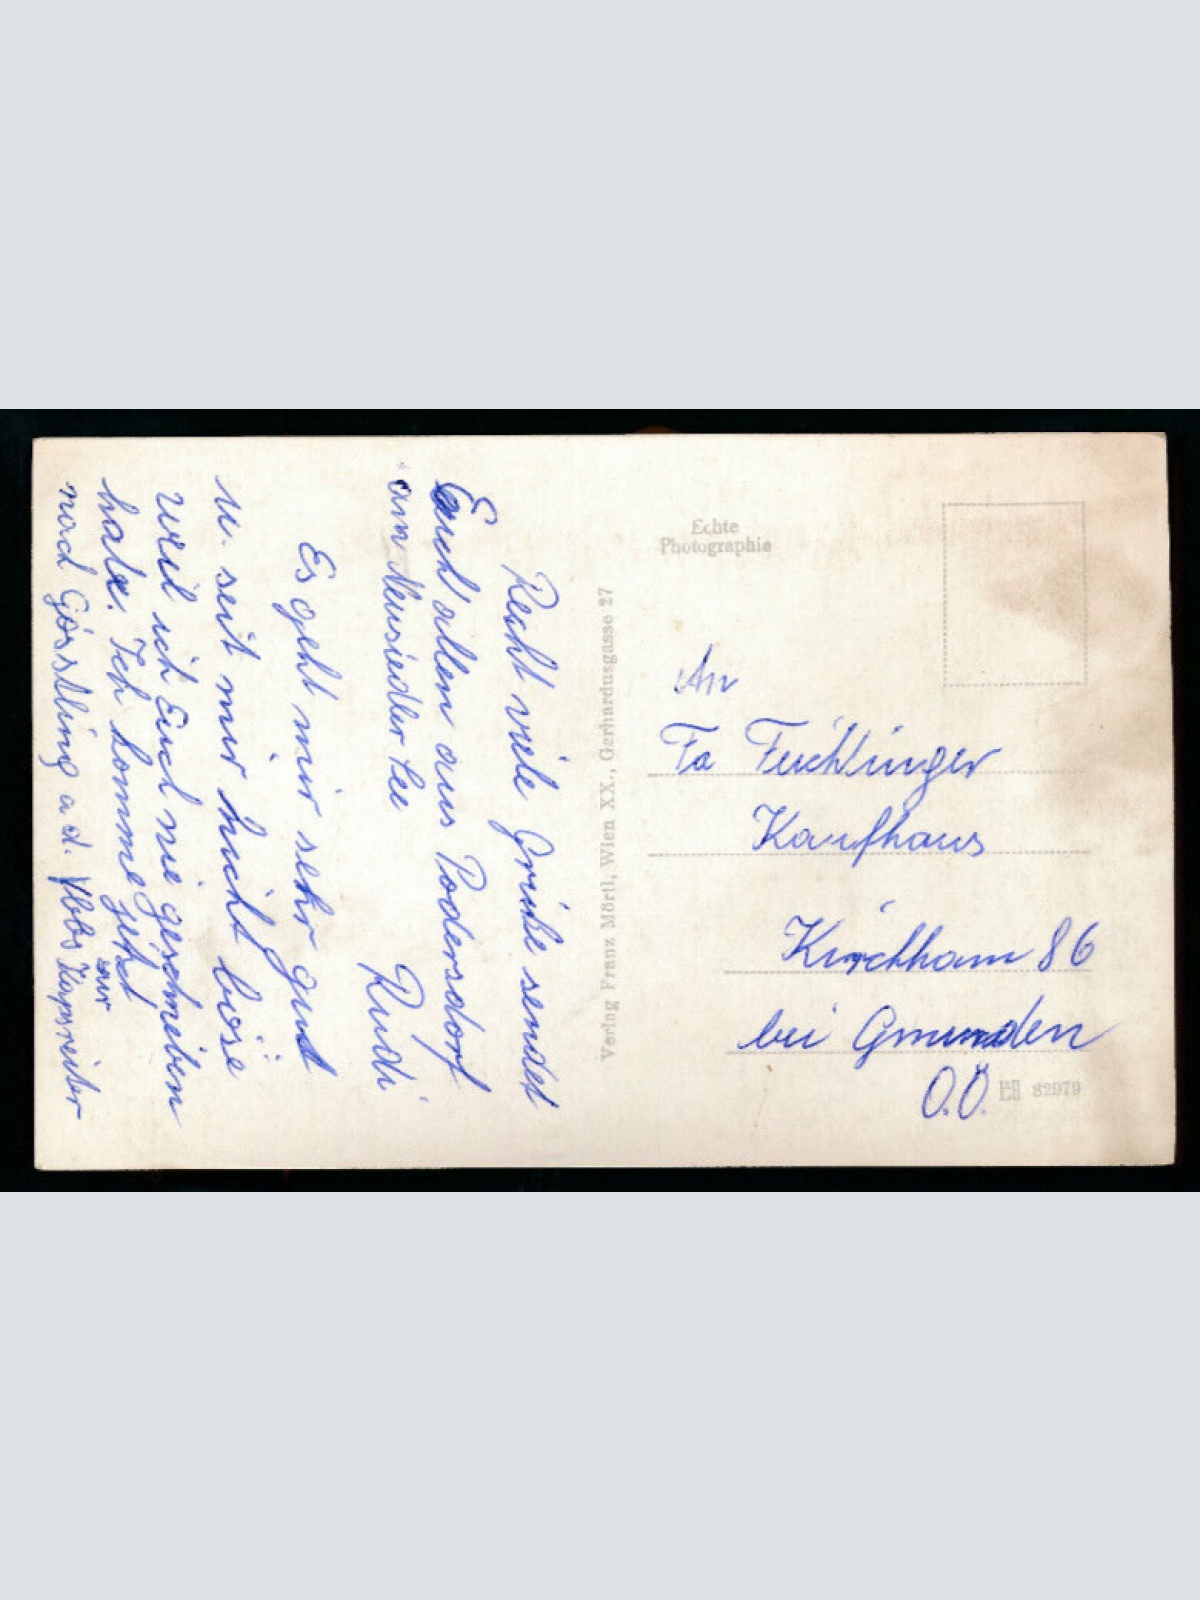 Recht viele Grüße sendet
Euch allen aus Podersdorf
am Neusiedler See
Rudi
Es geht mir sehr gut
u. seit mir nicht böse
weil ich Euch nie geschrieben
habe. Ich komme jetzt
nach Gössling a d. Ybbs zur
Echte
Photographie
Verlag Franz Mörtl, Wien XX., Gerhardusgasse 27
An
Fa Feichtinger
Kaufhaus
Kirchham 86
bei Gmunden
O.Ö.
82979